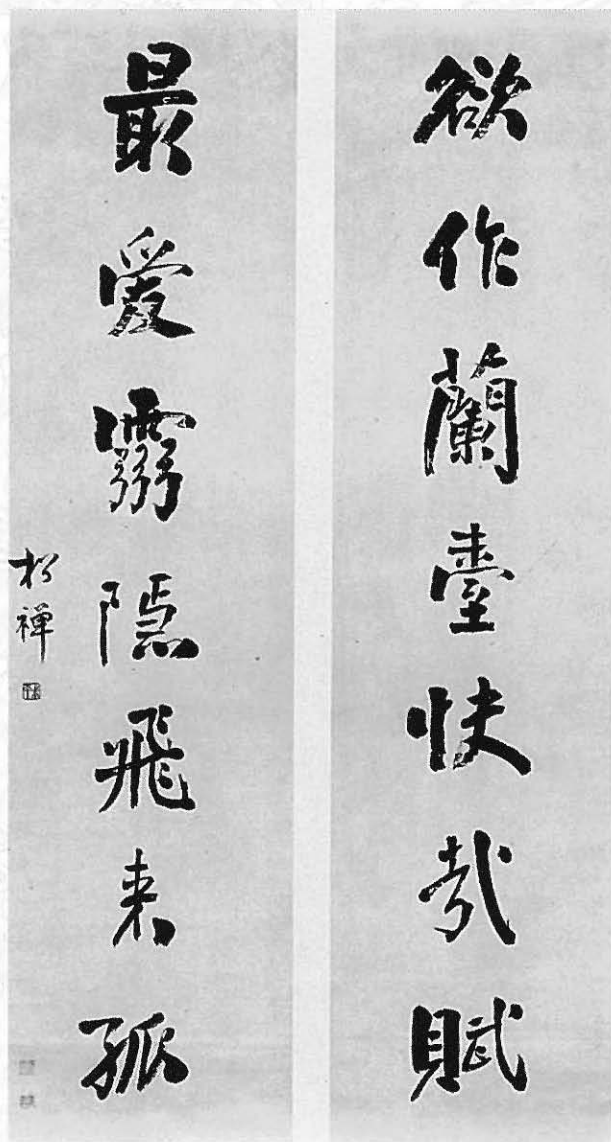 欲作蘭臺快哉賦
最愛霧隱飛来孤
松禪